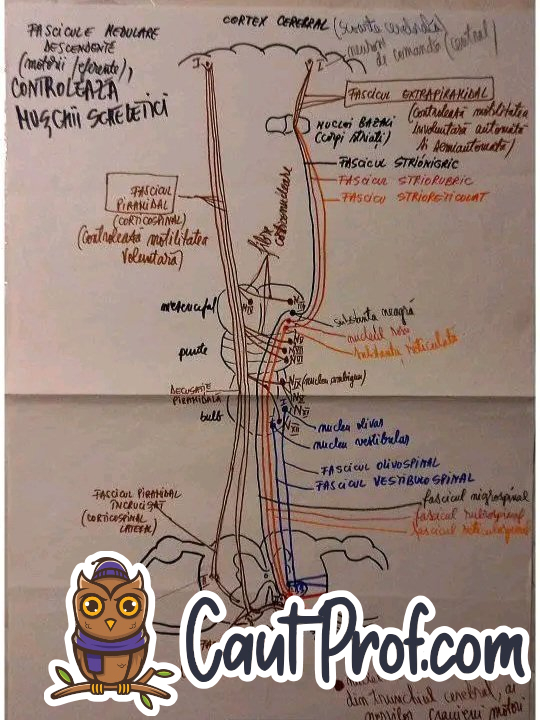 FASCICULE MEDULARE
DESCENDENTE
(motorii/eferente),
CONTROLEAZĂ
MUȘCHII SCHELETICI
CORTEX CEREBRAL (scoarța cerebrală)
neuroni
de comandă (central)
I
I
FASCICUL EXTRAPIRAMIDAL
(controlează motilitatea
involuntară automată
și semiautomată)
NUCLEI BAZALI
(corpi striați)
FASCICUL STRIONIGRIC
FASCICUL STRIORUBRIC
FASCICU STRIORETICULAT
FASCICUL
PIRAMIDAL
(CORTICOSPINAL)
(controlează motilitatea
voluntară)
fibre
corticonucleare
mezencefal
N III
substanța neagră
nucleul roșu
substanța reticulată
punte
N V
N VII
N IX (nucleu ambiguu)
N X
N XI
N XII
DECUSAȚIE
PIRAMIDALĂ
bulb
nucleu olivar
nucleu vestibular
FASCICUL OLIVOSPINAL
FASCICUL VESTIBULOSPINAL
fascicul nigrospinal
fascicul rubrospinal
fascicul reticulospinal
FASCICUL PIRAMIDAL
ÎNCRUCIȘAT
(CORTICOSPINAL
LATERAL)
CautProf.com
din trunchiul cerebral, ai
nervilor cranieni motori